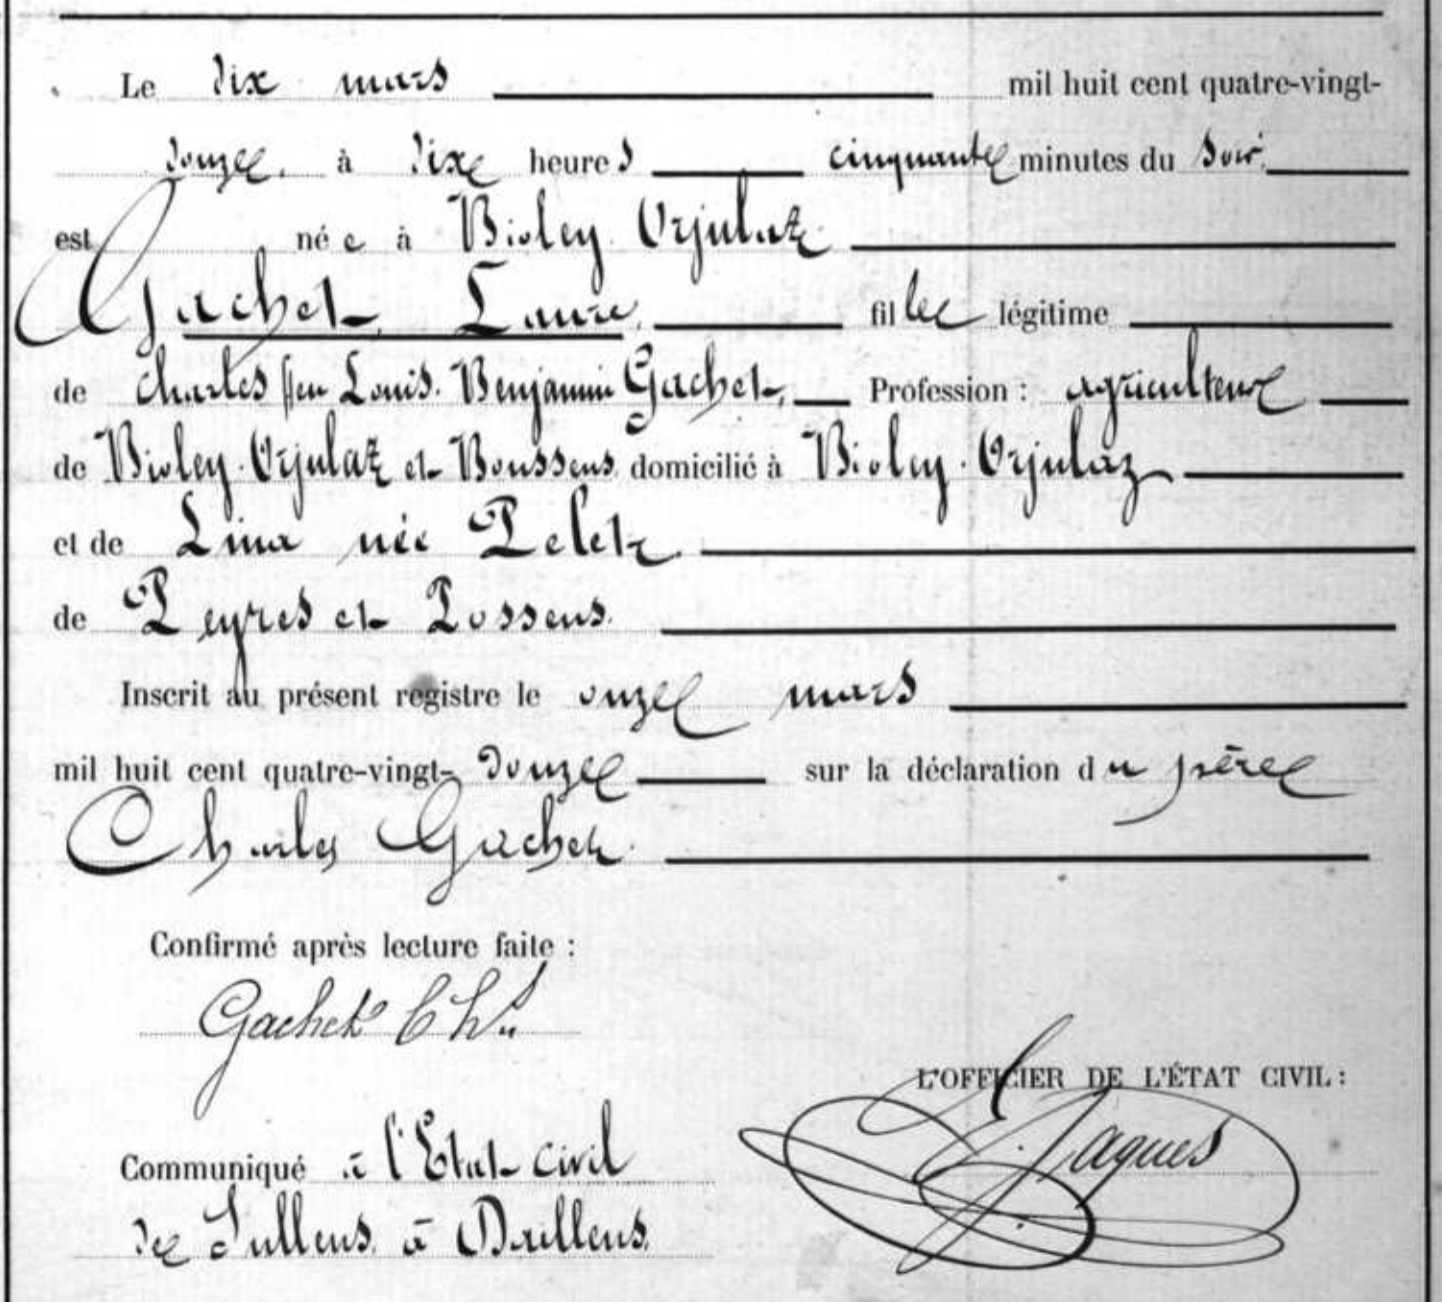 Le dix mars mil huit cent quatre-vingt-
douze. à dix heures cinquante minutes du soir.
est née à Bioley-Orjulaz
Gachet, Laure, fille légitime
de Charles ffeu Louis-Benjamin Gachet, Profession : agriculteur
de Bioley-Orjulaz et Boussens, domicilié à Bioley-Orjulaz
et de Lina née Pelet
de Peyres et Possens.
Inscrit au présent registre le onze mars
mil huit cent quatre-vingt-douze sur la déclaration du père
Charles Gachet.
Confirmé après lecture faite :
Gachet Chs
L'OFFICIER DE L'ÉTAT CIVIL :
Jaques
Communiqué à l'Etat-civil
de Sullens, à Daillens.